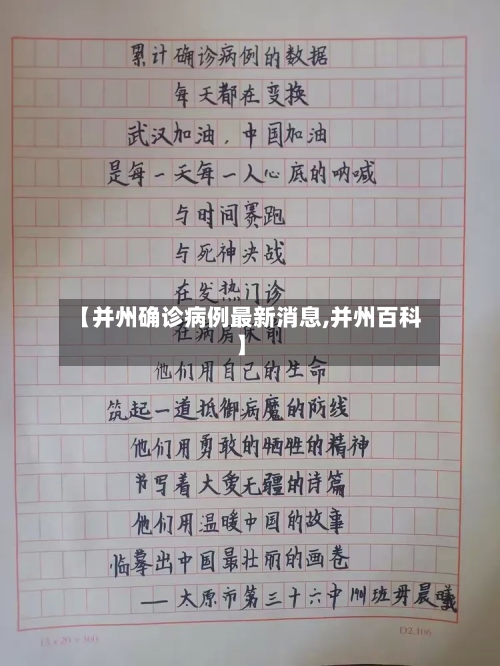 累计确诊病例的数据
每天都在变换
武汉加油，中国加油
是每一天每一人心底的呐喊
与时间赛跑
与死神决战
在发热门诊
【并州确诊病例最新消息,并州百科
】
在病房床前
他们用自己的生命
筑起一道抵御病魔的防线
他们用勇敢的牺牲的精神
书写着大爱无疆的诗篇
他们用温暖中国的故事
临摹出中国最壮丽的画卷
——太原市第三十六中1901班 晨曦